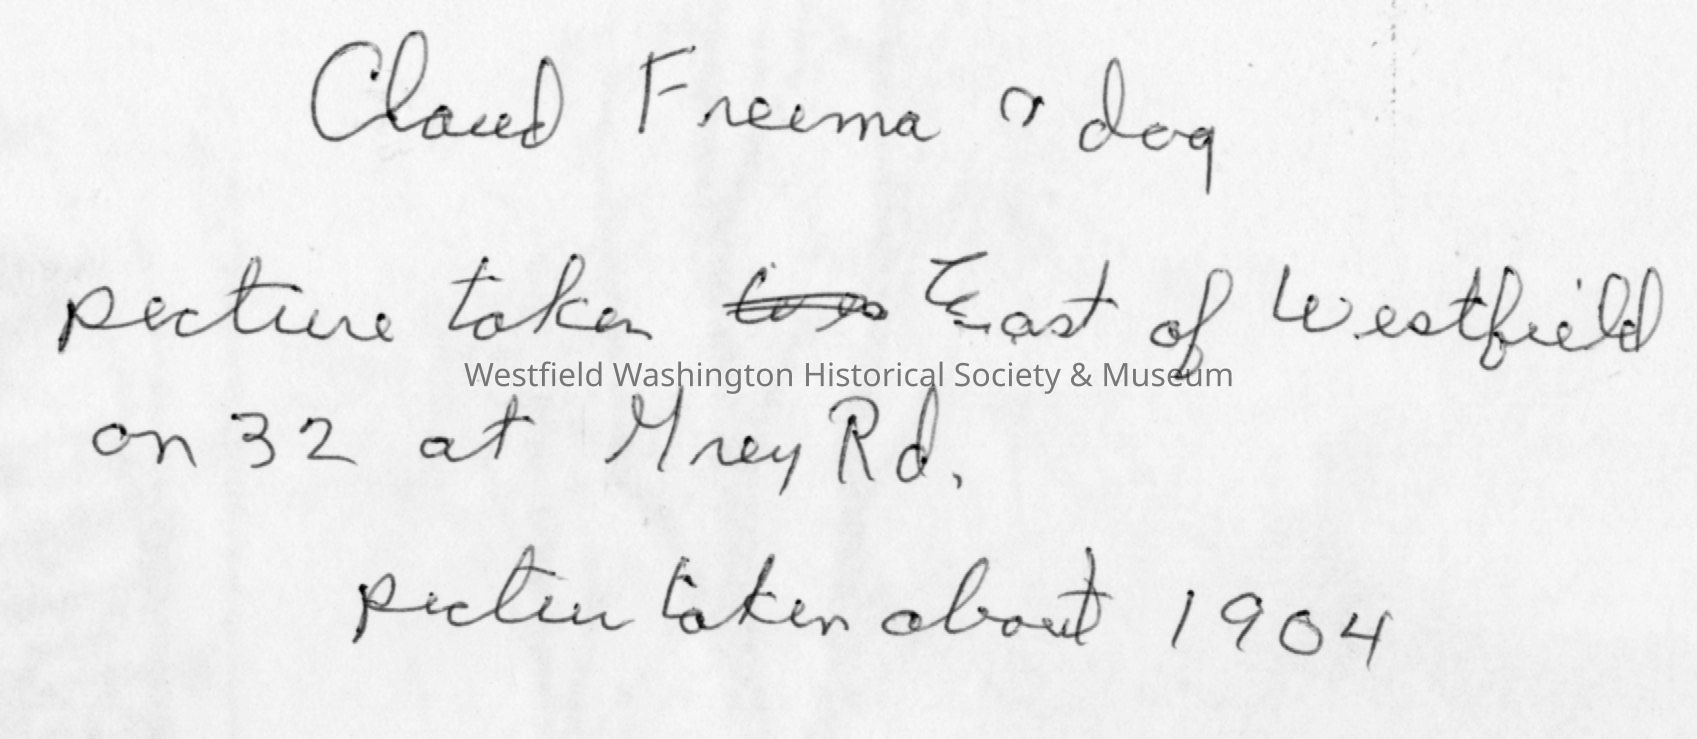 Claud Freema & dog
picture taken East of Westfield
Westfield Washington Historical Society & Museum
on 32 at Grey Rd.
pictur taken about 1904